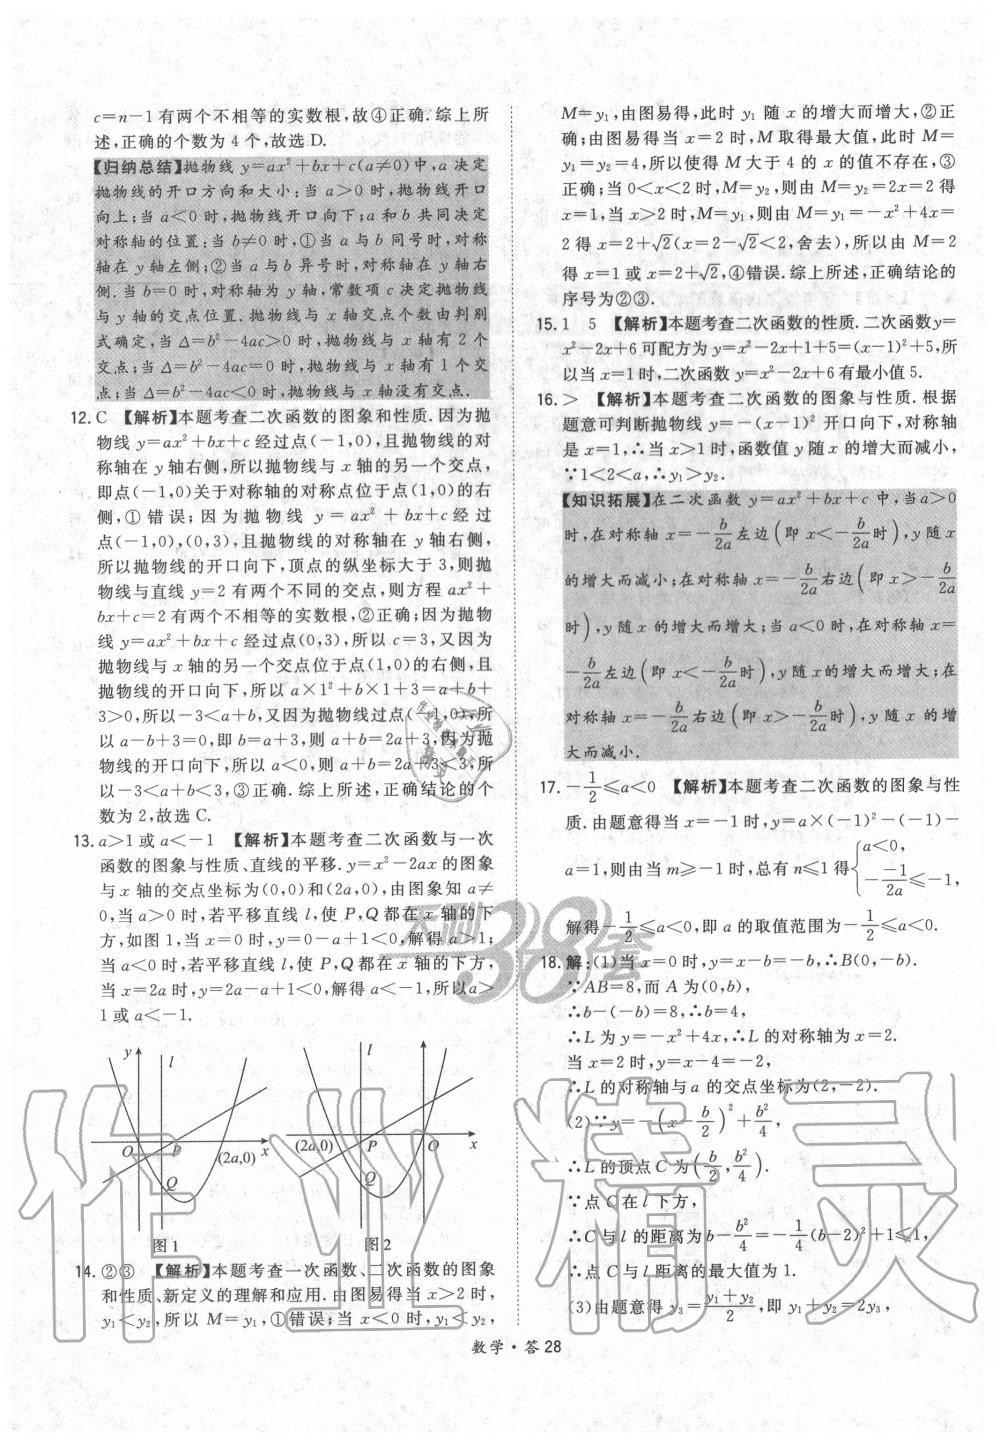 c=n-1有两个不相等的实数根,故④正确.综上所
述,正确的个数为4个,故选D.
【归纳总结】抛物线 y=ax²+bx+c(a≠0)中,a决定
抛物线的开口方向和大小:当a>0时,抛物线开口
向上;当a<0时,抛物线开口向下;a和b共同决定
对称轴的位置:当b≠0时,①当a与b同号时,对称
轴在y轴左侧;②当a与b异号时,对称轴在y轴右
侧.当b=0时,对称轴为y轴,常数项c决定抛物线
与y轴的交点位置.抛物线与x轴交点个数由判别
式确定,当Δ=b²-4ac>0时,抛物线与x轴有2个
交点;当Δ=b²-4ac=0时,抛物线与x轴有1个交
点;当Δ=b²-4ac<0时,抛物线与x轴没有交点.
12.C 【解析】本题考查二次函数的图象和性质.因为抛
物线y=ax²+bx+c经过点(-1,0),且抛物线的对
称轴在y轴右侧,所以抛物线与x轴的另一个交点,
即点(-1,0)关于对称轴的对称点位于点(1,0)的右
侧,①错误;因为抛物线 y=ax²+bx+c 经过
点(-1,0),(0,3),且抛物线的对称轴在y轴右侧,
所以抛物线的开口向下,顶点的纵坐标大于3,则抛
物线与直线y=2有两个不同的交点,则方程ax²+
bx+c=2有两个不相等的实数根,②正确;因为抛物
线y=ax²+bx+c经过点(0,3),所以c=3,又因为
抛物线与x轴的另一个交点位于点(1,0)的右侧,且
抛物线的开口向下,所以a×1²+b×1+3=a+b+
3>0,所以-3<a+b,又因为抛物线过点(-1,0),所
以a-b+3=0,即b=a+3,则a+b=2a+3,因为抛
物线的开口向下,所以a<0,所以a+b=2a+3<3,所
以-3<a+b<3,③正确.综上所述,正确结论的个
数为2,故选C.
13.a>1或a<-1 【解析】本题考查二次函数与一次
函数的图象与性质、直线的平移.y=x²-2ax的图象
与x轴的交点坐标为(0,0)和(2a,0),由图象知a≠
0,当a>0时,若平移直线l,使P,Q都在x轴的下
方,如图1,当x=0时,y=0-a+1<0,解得a>1;
当a<0时,若平移直线l,使P,Q都在x轴的下方,
当x=2a时,y=2a-a+1<0,解得a<-1,所以a>
1或a<-1.
y l O P x (2a,0) Q
图1
l y (2a,0) P O x Q
图2
14.②③ 【解析】本题考查一次函数、二次函数的图象
和性质、新定义的理解和应用.由图易得当x>2时,
y₁<y₂,所以M=y₁,①错误;当x<0时,y₁<y₂,
M=y₁,由图易得,此时y₁随x的增大而增大,②正
确;由图易得当x=2时,M取得最大值,此时M=
y₁=y₂=4,所以使得M大于4的x的值不存在,③
正确;当0<x<2时,M=y₂,则由M=y₂=2x=2得
x=1,当x>2时,M=y₁,则由M=y₁=-x²+4x=
2得x=2+√2(x=2-√2<2,舍去),所以由M=2
得x=1或x=2+√2,④错误.综上所述,正确结论的
序号为②③.
15.1 5 【解析】本题考查二次函数的性质.二次函数y=
x²-2x+6可配方为y=x²-2x+1+5=(x-1)²+5,所
以当x=1时,二次函数y=x²-2x+6有最小值5.
16.> 【解析】本题考查二次函数的图象与性质.根据
题意可判断抛物线y=-(x-1)²开口向下,对称轴
是x=1,∴当x>1时,函数值y随x的增大而减小,
∵1<2<a,∴y₁>y₂.
【知识拓展】在二次函数y=ax²+bx+c中,当a>0
时,在对称轴x=-b/2a左边(即x<-b/2a时),y随x
的增大而减小;在对称轴x=-b/2a右边(即x>-b/2a
时),y随x的增大而增大;当a<0时,在对称轴x=
-b/2a左边(即x<-b/2a时),y随x的增大而增大;在
对称轴x=-b/2a右边(即x>-b/2a时),y随x的增
大而减小.
17.-1/2≤a<0 【解析】本题考查二次函数的图象与性
质.由题意得当x=-1时,y=a×(-1)²-(-1)-
a=1,则由当m≥-1时,总有n≤1得{a<0, -(-1)/2a≤-1,
解得-1/2≤a<0,即a的取值范围为-1/2≤a<0.
18.解:(1)当x=0时,y=x-b=-b,∴B(0,-b).
∵AB=8,而A为(0,b),
∴b-(-b)=8,∴b=4,
∴L为y=-x²+4x,∴L的对称轴为x=2.
当x=2时,y=x-4=-2,
∴L的对称轴与a的交点坐标为(2,-2).
(2)∵y=-(x-b/2)²+b²/4,
∴L的顶点C为(b/2,b²/4).
∵点C在l下方,
∴C与l的距离为b-b²/4=-1/4(b-2)²+1≤1,
∴点C与l距离的最大值为1.
(3)由题意得y₃=(y₁+y₂)/2,即y₁+y₂=2y₃,
数学·答28
天利38套
作业精灵